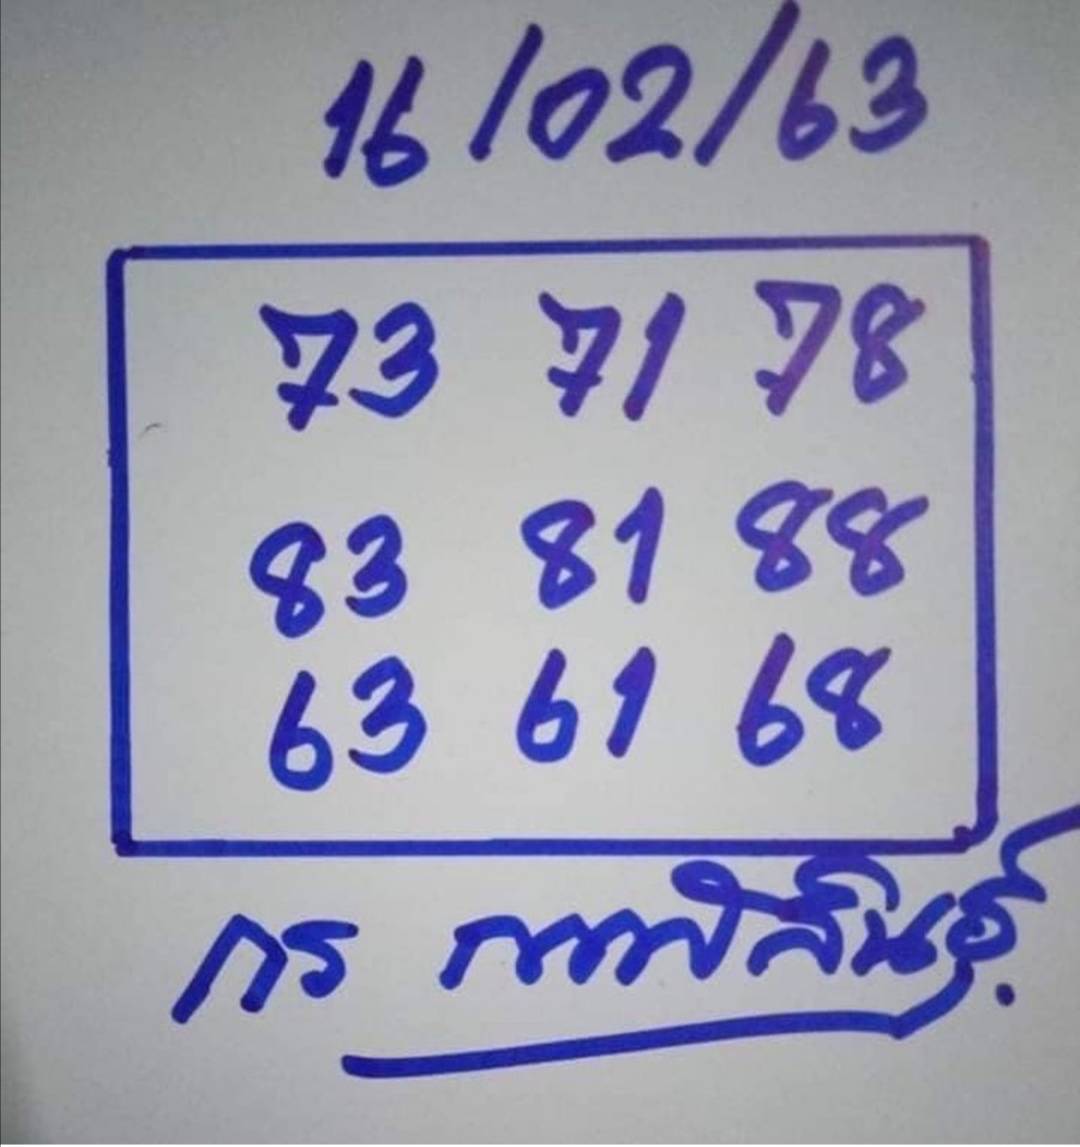 16/02/63
73 71 78
83 81 88
63 61 68
กร กาฬสินธุ์.